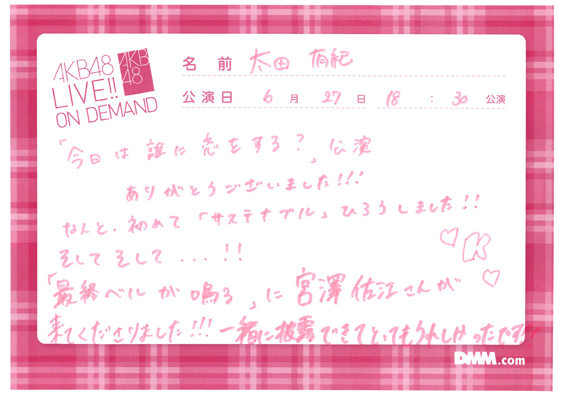 AKB48
LIVE!!
ON DEMAND
AKB
48
名 前 太田 有紀
公演日 6 月 27 日 18 : 30 公演
「今日は誰に恋をする?」公演
ありがとうございました!!!
なんと、初めて「サステナブル」ひろうしました!!
そしてそして...!!
K
「最終ベルが鳴る」に宮澤佐江さんが
来てくださりました!!! 一緒に披露できてとってもうれしかったです
DMM.com